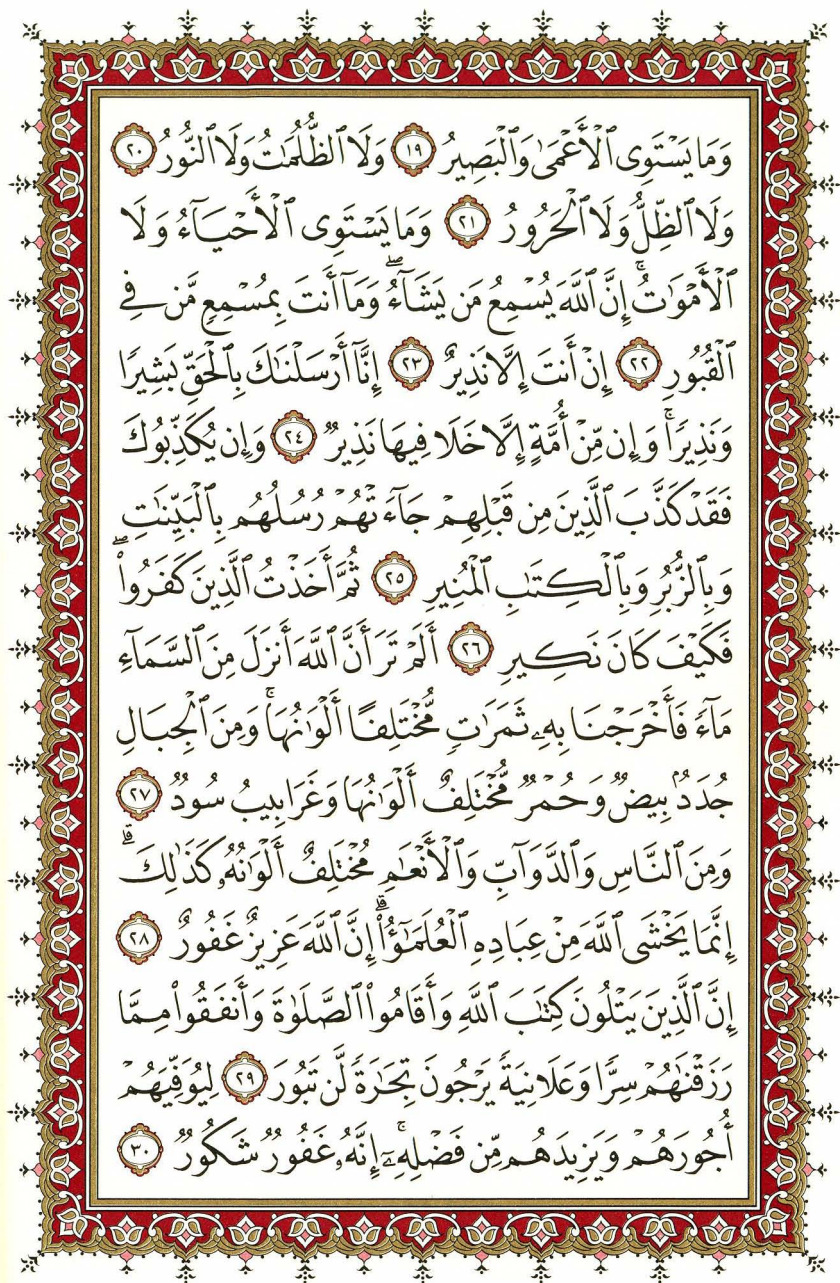 وَمَا يَسْتَوِى ٱلْأَعْمَىٰ وَٱلْبَصِيرُ ١٩ وَلَا ٱلظُّلُمَٰتُ وَلَا ٱلنُّورُ ٢٠
وَلَا ٱلظِّلُّ وَلَا ٱلْحَرُورُ ٢١ وَمَا يَسْتَوِى ٱلْأَحْيَآءُ وَلَا
ٱلْأَمْوَٰتُۚ إِنَّ ٱللَّهَ يُسْمِعُ مَن يَشَآءُۖ وَمَآ أَنتَ بِمُسْمِعٍ مَّن فِى
ٱلْقُبُورِ ٢٢ إِنْ أَنتَ إِلَّا نَذِيرٌ ٢٣ إِنَّآ أَرْسَلْنَٰكَ بِٱلْحَقِّ بَشِيرًا
وَنَذِيرًاۚ وَإِن مِّنْ أُمَّةٍ إِلَّا خَلَا فِيهَا نَذِيرٌ ٢٤ وَإِن يُكَذِّبُوكَ
فَقَدْ كَذَّبَ ٱلَّذِينَ مِن قَبْلِهِمْ جَآءَتْهُمْ رُسُلُهُم بِٱلْبَيِّنَٰتِ
وَبِٱلزُّبُرِ وَبِٱلْكِتَٰبِ ٱلْمُنِيرِ ٢٥ ثُمَّ أَخَذْتُ ٱلَّذِينَ كَفَرُوا۟ۖ
فَكَيْفَ كَانَ نَكِيرِ ٢٦ أَلَمْ تَرَ أَنَّ ٱللَّهَ أَنزَلَ مِنَ ٱلسَّمَآءِ
مَآءً فَأَخْرَجْنَا بِهِۦ ثَمَرَٰتٍ مُّخْتَلِفًا أَلْوَٰنُهَاۚ وَمِنَ ٱلْجِبَالِ
جُدَدٌۢ بِيضٌ وَحُمْرٌ مُّخْتَلِفٌ أَلْوَٰنُهَا وَغَرَابِيبُ سُودٌ ٢٧
وَمِنَ ٱلنَّاسِ وَٱلدَّوَآبِّ وَٱلْأَنْعَٰمِ مُخْتَلِفٌ أَلْوَٰنُهُۥ كَذَٰلِكَۗ
إِنَّمَا يَخْشَى ٱللَّهَ مِنْ عِبَادِهِ ٱلْعُلَمَٰٓؤُا۟ۗ إِنَّ ٱللَّهَ عَزِيزٌ غَفُورٌ ٢٨
إِنَّ ٱلَّذِينَ يَتْلُونَ كِتَٰبَ ٱللَّهِ وَأَقَامُوا۟ ٱلصَّلَوٰةَ وَأَنفَقُوا۟ مِمَّا
رَزَقْنَٰهُمْ سِرًّا وَعَلَانِيَةً يَرْجُونَ تِجَٰرَةً لَّن تَبُورَ ٢٩ لِيُوَفِّيَهُمْ
أُجُورَهُمْ وَيَزِيدَهُم مِّن فَضْلِهِۦٓۚ إِنَّهُۥ غَفُورٌ شَكُورٌ ٣٠